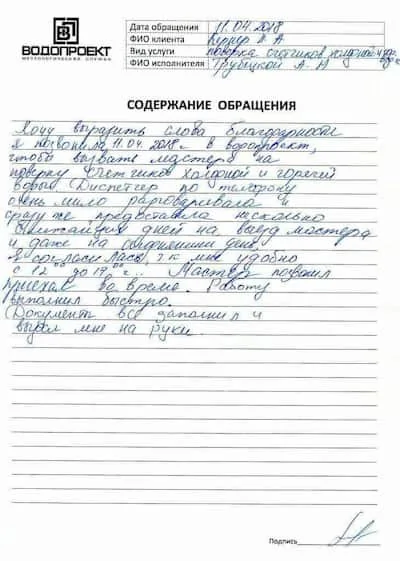 ВОДОПРОЕКТ
МЕТРОЛОГИЧЕСКАЯ СЛУЖБА
Дата обращения 11.04.2018
ФИО клиента Л А
Вид услуги поверка счетчиков холодной и гор.
ФИО исполнителя Трубецкой А. А
СОДЕРЖАНИЕ ОБРАЩЕНИЯ
Хочу выразить слова благодарности
я позвонила 11.04.2018 г в водопроект,
чтобы вызвать мастера на
поверку счетчиков холодной и горячей
воды. Диспетчер по телефону
очень мило разговаривала и
сразу же предоставила несколько
дней на выезд мастера
и даже на сегодняшний день.
Я согласилась, т.к мне удобно
с 12 00 до 19 00. Мастер позвонил
приехал во время. Работу
выполнил быстро.
Документы все заполнил и
выдал мне на руки.
Подпись